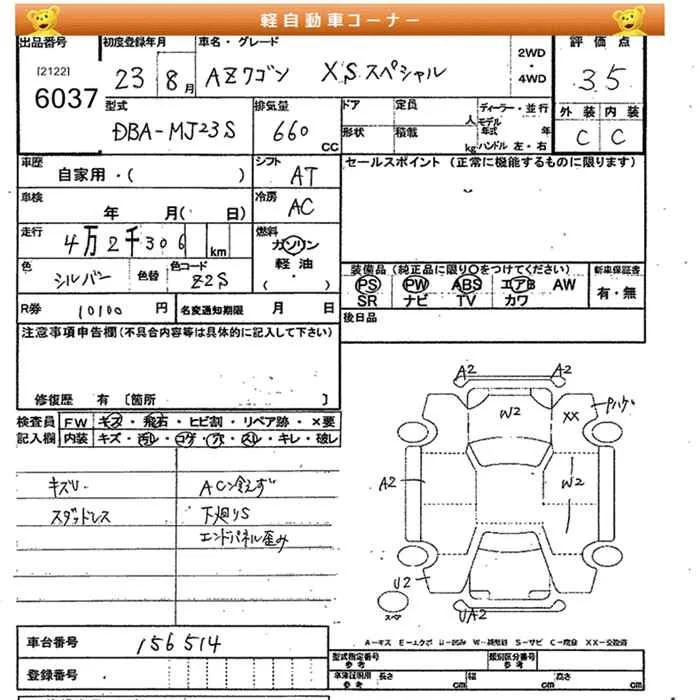 軽自動車コーナー
出品番号 初度登録年月 車名・グレード 2WD・4WD 評価点
[2122]
6037 23 8月 AZワゴン XSスペシャル 3.5
型式 排気量 ドア 定員 人 ディーラー・並行 外装 内装
DBA-MJ23S 660 CC 形状 積載 kg モデル年式 年 ハンドル 左・右 C C
車歴 自家用・( ) シフト AT セールスポイント (正常に機能するものに限ります)
車検 年 月( 日) 冷房 AC
走行 4万2千306 km 燃料 ガソリン 軽油・( )
色 シルバー 色替 色コード Z2S 装備品 (純正品に限り○をつけてください) 新車保証書
PS PW ABS エアB AW 有・無
SR ナビ TV カワ
R券 10100 円 名変通知期限 月 日 後日品
注意事項申告欄 (不具合内容等は具体的に記入して下さい)
修復歴 有 [箇所 ]
検査員 FW キズ・飛石・ヒビ割・リペア跡・×要
記入欄 内装 キズ・汚レ・コゲ・穴・スレ・キレ・破レ
キズU ACン冷えず
スタッドレス 下廻りS
エンドパネル歪み
A2 A2
W2 XX Pハゲ
A2 W2
U2
スペア UA2
車台番号 156514
登録番号
A-キズ E-エクボ U-凹み W-補修跡 S-サビ C-腐食 XX-交換済
型式指定番号 参考 類別区分番号 参考
車庫証明用 参考 長さ cm 幅 cm 高さ cm